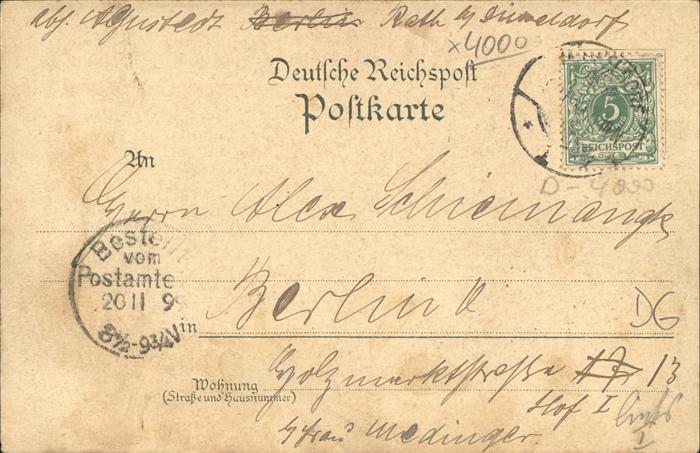 abs. Agustedt Berlin Rath b/ Düsseldorf
x4000
Deutsche Reichspost
Postkarte
5
REICHSPOST
D-4000
An
Herrn Alex Schiemangk
Bestellt
vom
Postamte
20 11 9
8½-9¾V
in Berlin O
DG
Wohnung
(Straße und Hausnummer)
Holzmarktstraße 13
Hof I links
I
b/ Frau Medinger.